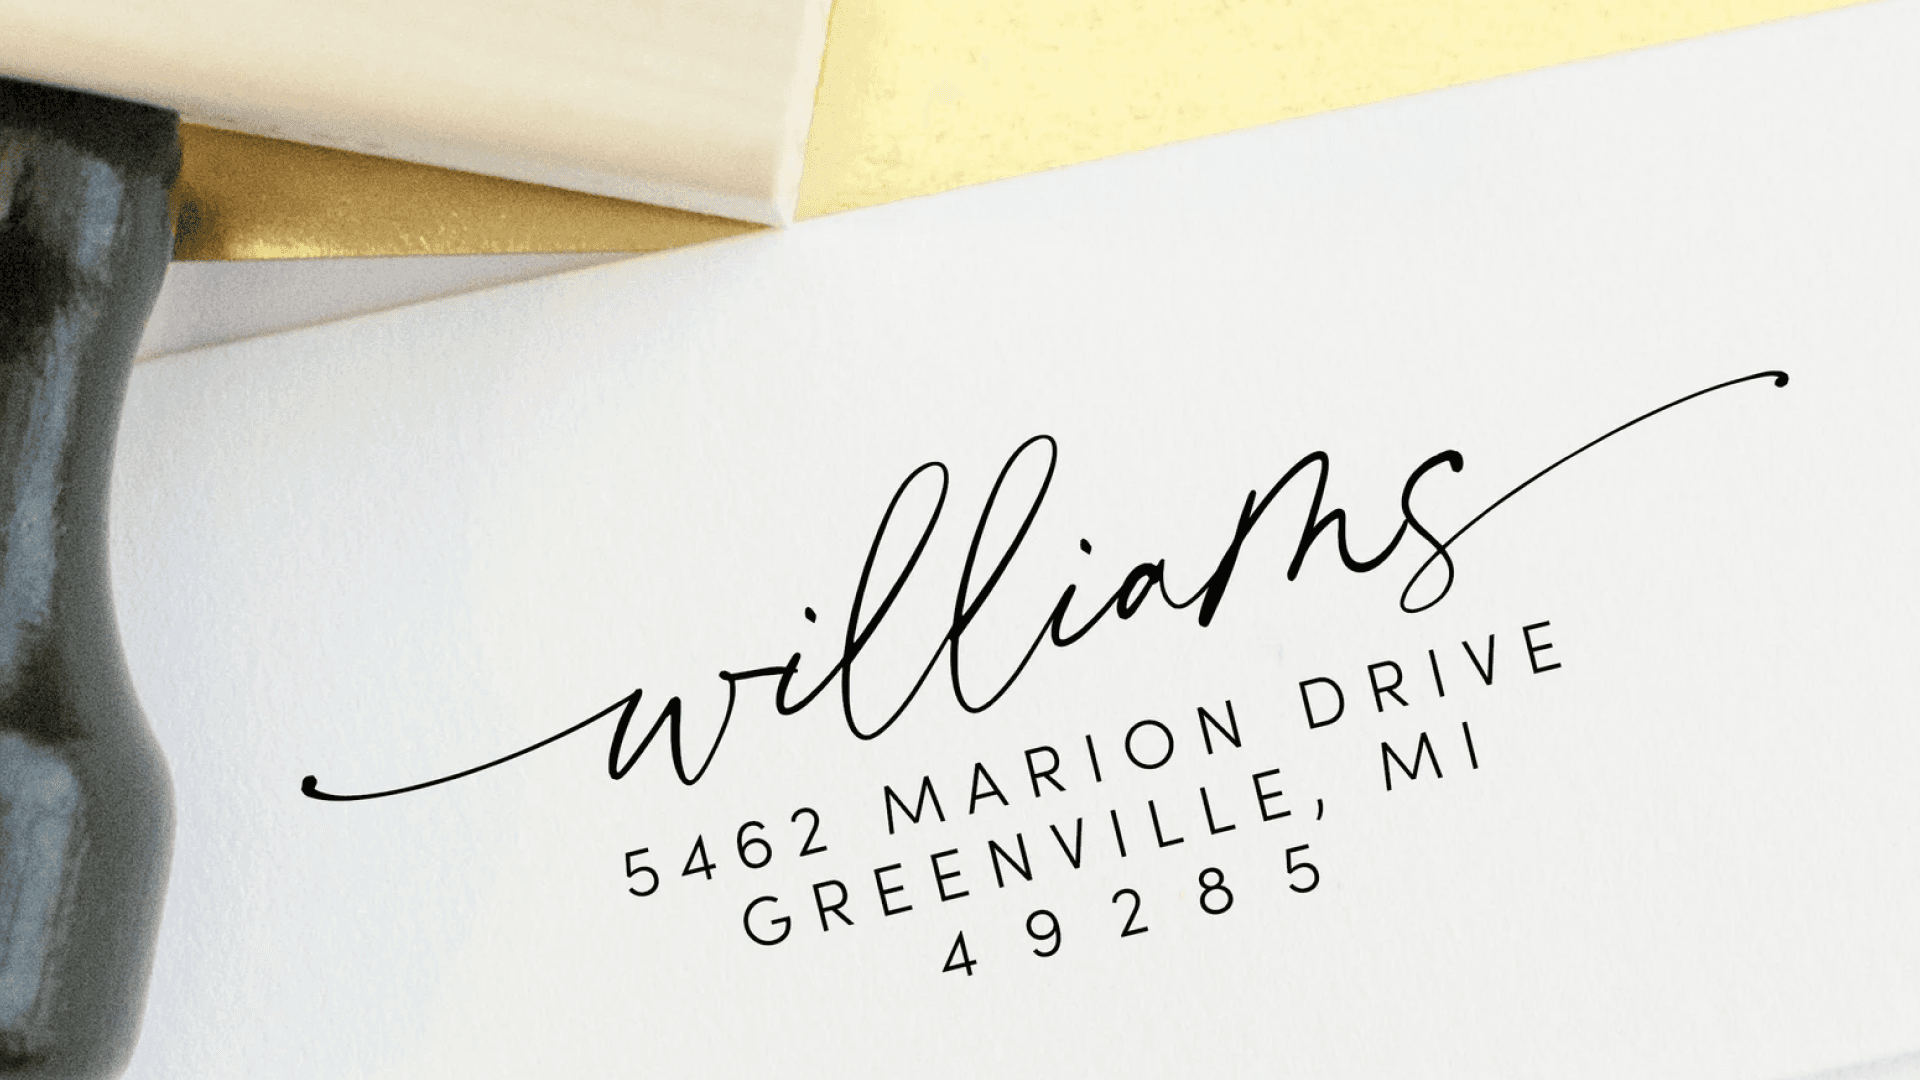 williams
5462 MARION DRIVE
GREENVILLE, MI
49285